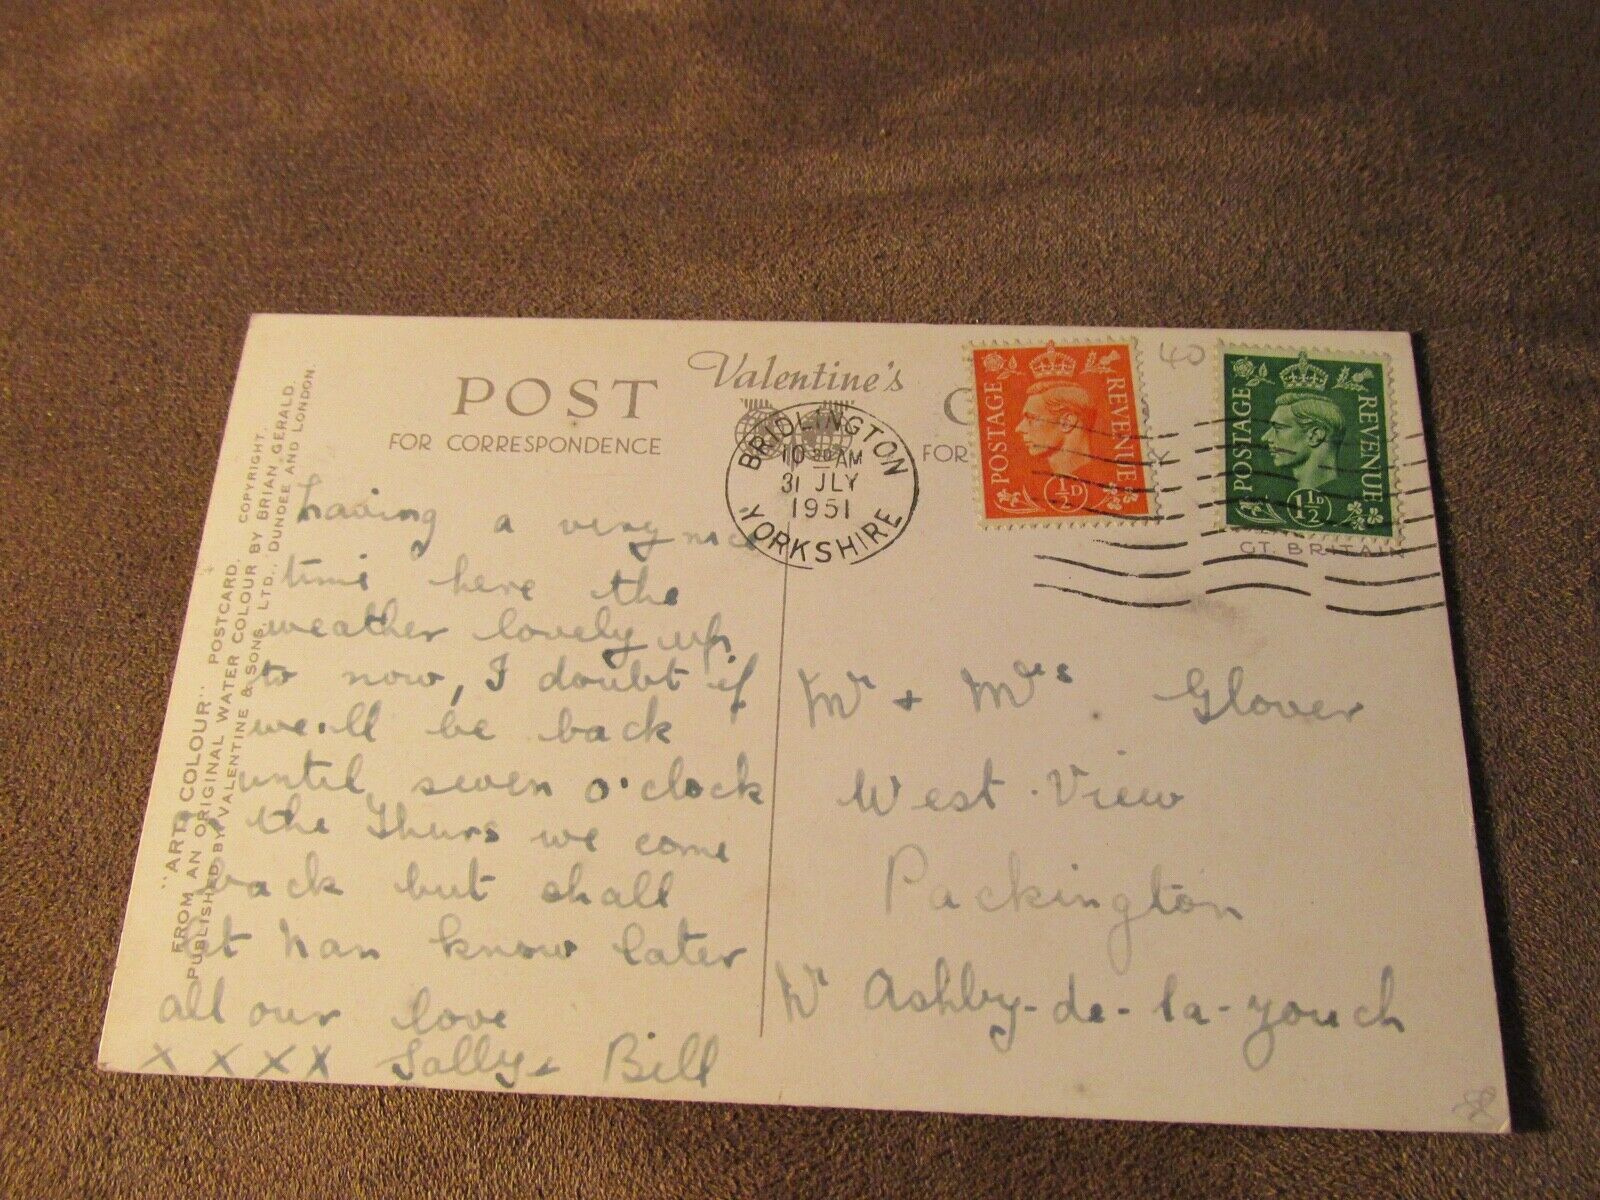 POST
Valentine's
FOR CORRESPONDENCE
FOR
"ART COLOUR" POSTCARD. COPYRIGHT.
FROM AN ORIGINAL WATER COLOUR BY BRIAN GERALD.
PUBLISHED BY VALENTINE & SONS, LTD., DUNDEE AND LONDON.
BRIDLINGTON
10 30 AM
31 JLY
1951
YORKSHIRE
POSTAGE REVENUE
1½D
40
POSTAGE REVENUE
1½D
GT. BRITAIN
having a very nice
time here the
weather lovely up
to now, I doubt if
we'll be back
until seven o'clock
the Thurs we come
back but shall
let Nan know later
all our love
X X X X Sally & Bill
Mr + Mrs Glover
West View
Packington
Nr Ashby-de-la-Zouch